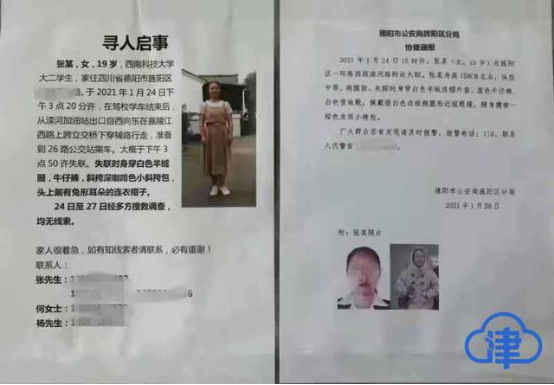 寻人启事
张某，女，19岁，西南科技大学
大二学生，家住四川省德阳市旌阳区
，于2021年1月24日下
午3点20分许，在驾校学车结束后，
从滦河加油站出口自西向东在嘉陵江
西路上跨立交桥下穿辅路行走，准备
到26路公交站乘车。大概于下午3
点50许失联。失联时身穿白色羊绒
服，牛仔裤，斜挎深咖啡色小斜挎包，
头上戴有兔形耳朵的连衣帽子。
24日至27日经多方搜救调查，
均无线索。
家人很着急，如有知线索者请联系，必有重谢！
联系人：
张先生：
何女士：
杨先生：
德阳市公安局旌阳区分局
协查通报
2021年1月24日15时许，张某（女，19岁）在旌阳
区一环路西段滦河路附近失踪。张某身高
中等，椭圆脸。失踪时身穿白色羊绒连帽外套，蓝色牛仔裤，
白色雪地靴，佩戴银白色边框椭圆形近视眼镜，随身携带一
棕色皮质小挎包。
广大群众若有发现请及时报警，报警电话：110，联系
人代警官
德阳市公安局旌阳区分局
2021年1月28日
附：张某照片
津